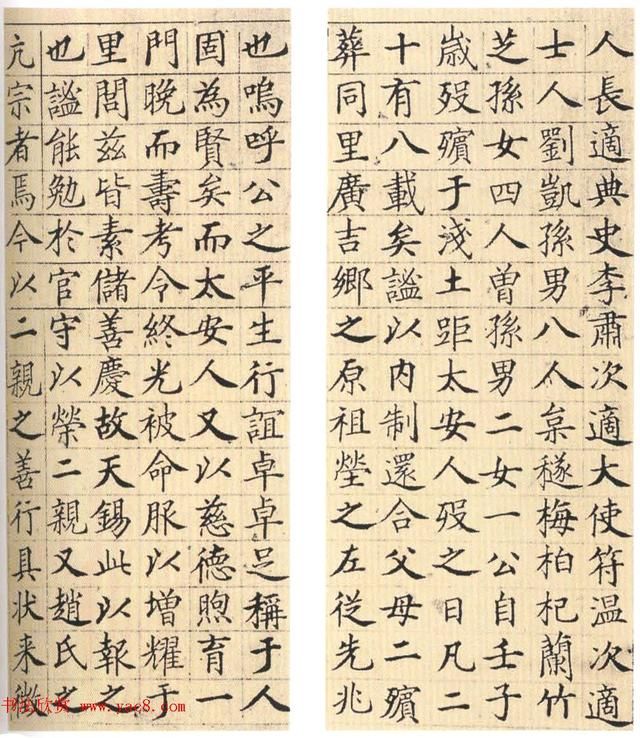 人長適典史李肅次適大使符温次適
士人劉凱孫男八人枲穟梅柏杞蘭竹
芝孫女四人曽孫男二女一公自壬子
歳歿殯于淺土距太安人歿之日凡二
十有八載矣謐以内制還合父母二殯
葬同里廣吉鄉之原祖塋之左從先兆
也嗚呼公之平生行誼卓卓足稱于人
固為賢矣而太安人又以慈德煦育一
門晚而壽考令終光被命服以增耀于
里閭兹皆素儲善慶故天錫此以報之
也謐能勉於官守以榮二親又趙氏之
亢宗者焉今以二親之善行具状来徵
书法欣赏 www.yac8.com